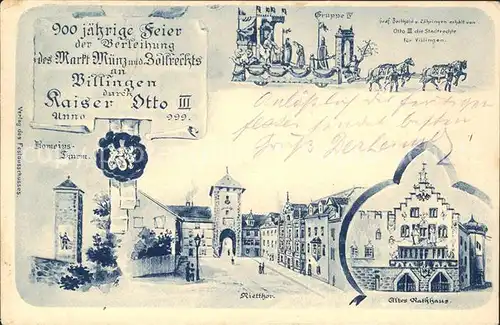 900 jährige Feier
der Verleihung
des Markt Münz und Zollrechts
an
Villingen
durch
Kaiser Otto III
Anno 999.
Gruppe IV
Graf Berthold v. Zähringen erhält von
Otto III die Stadtrechte
für Villingen.
Anläßlich der heutigen
Feier sendet besten
Gruß
Romeius-
Turm.
Verlag des Festausschusses
Rietthor.
Altes Rathhaus.